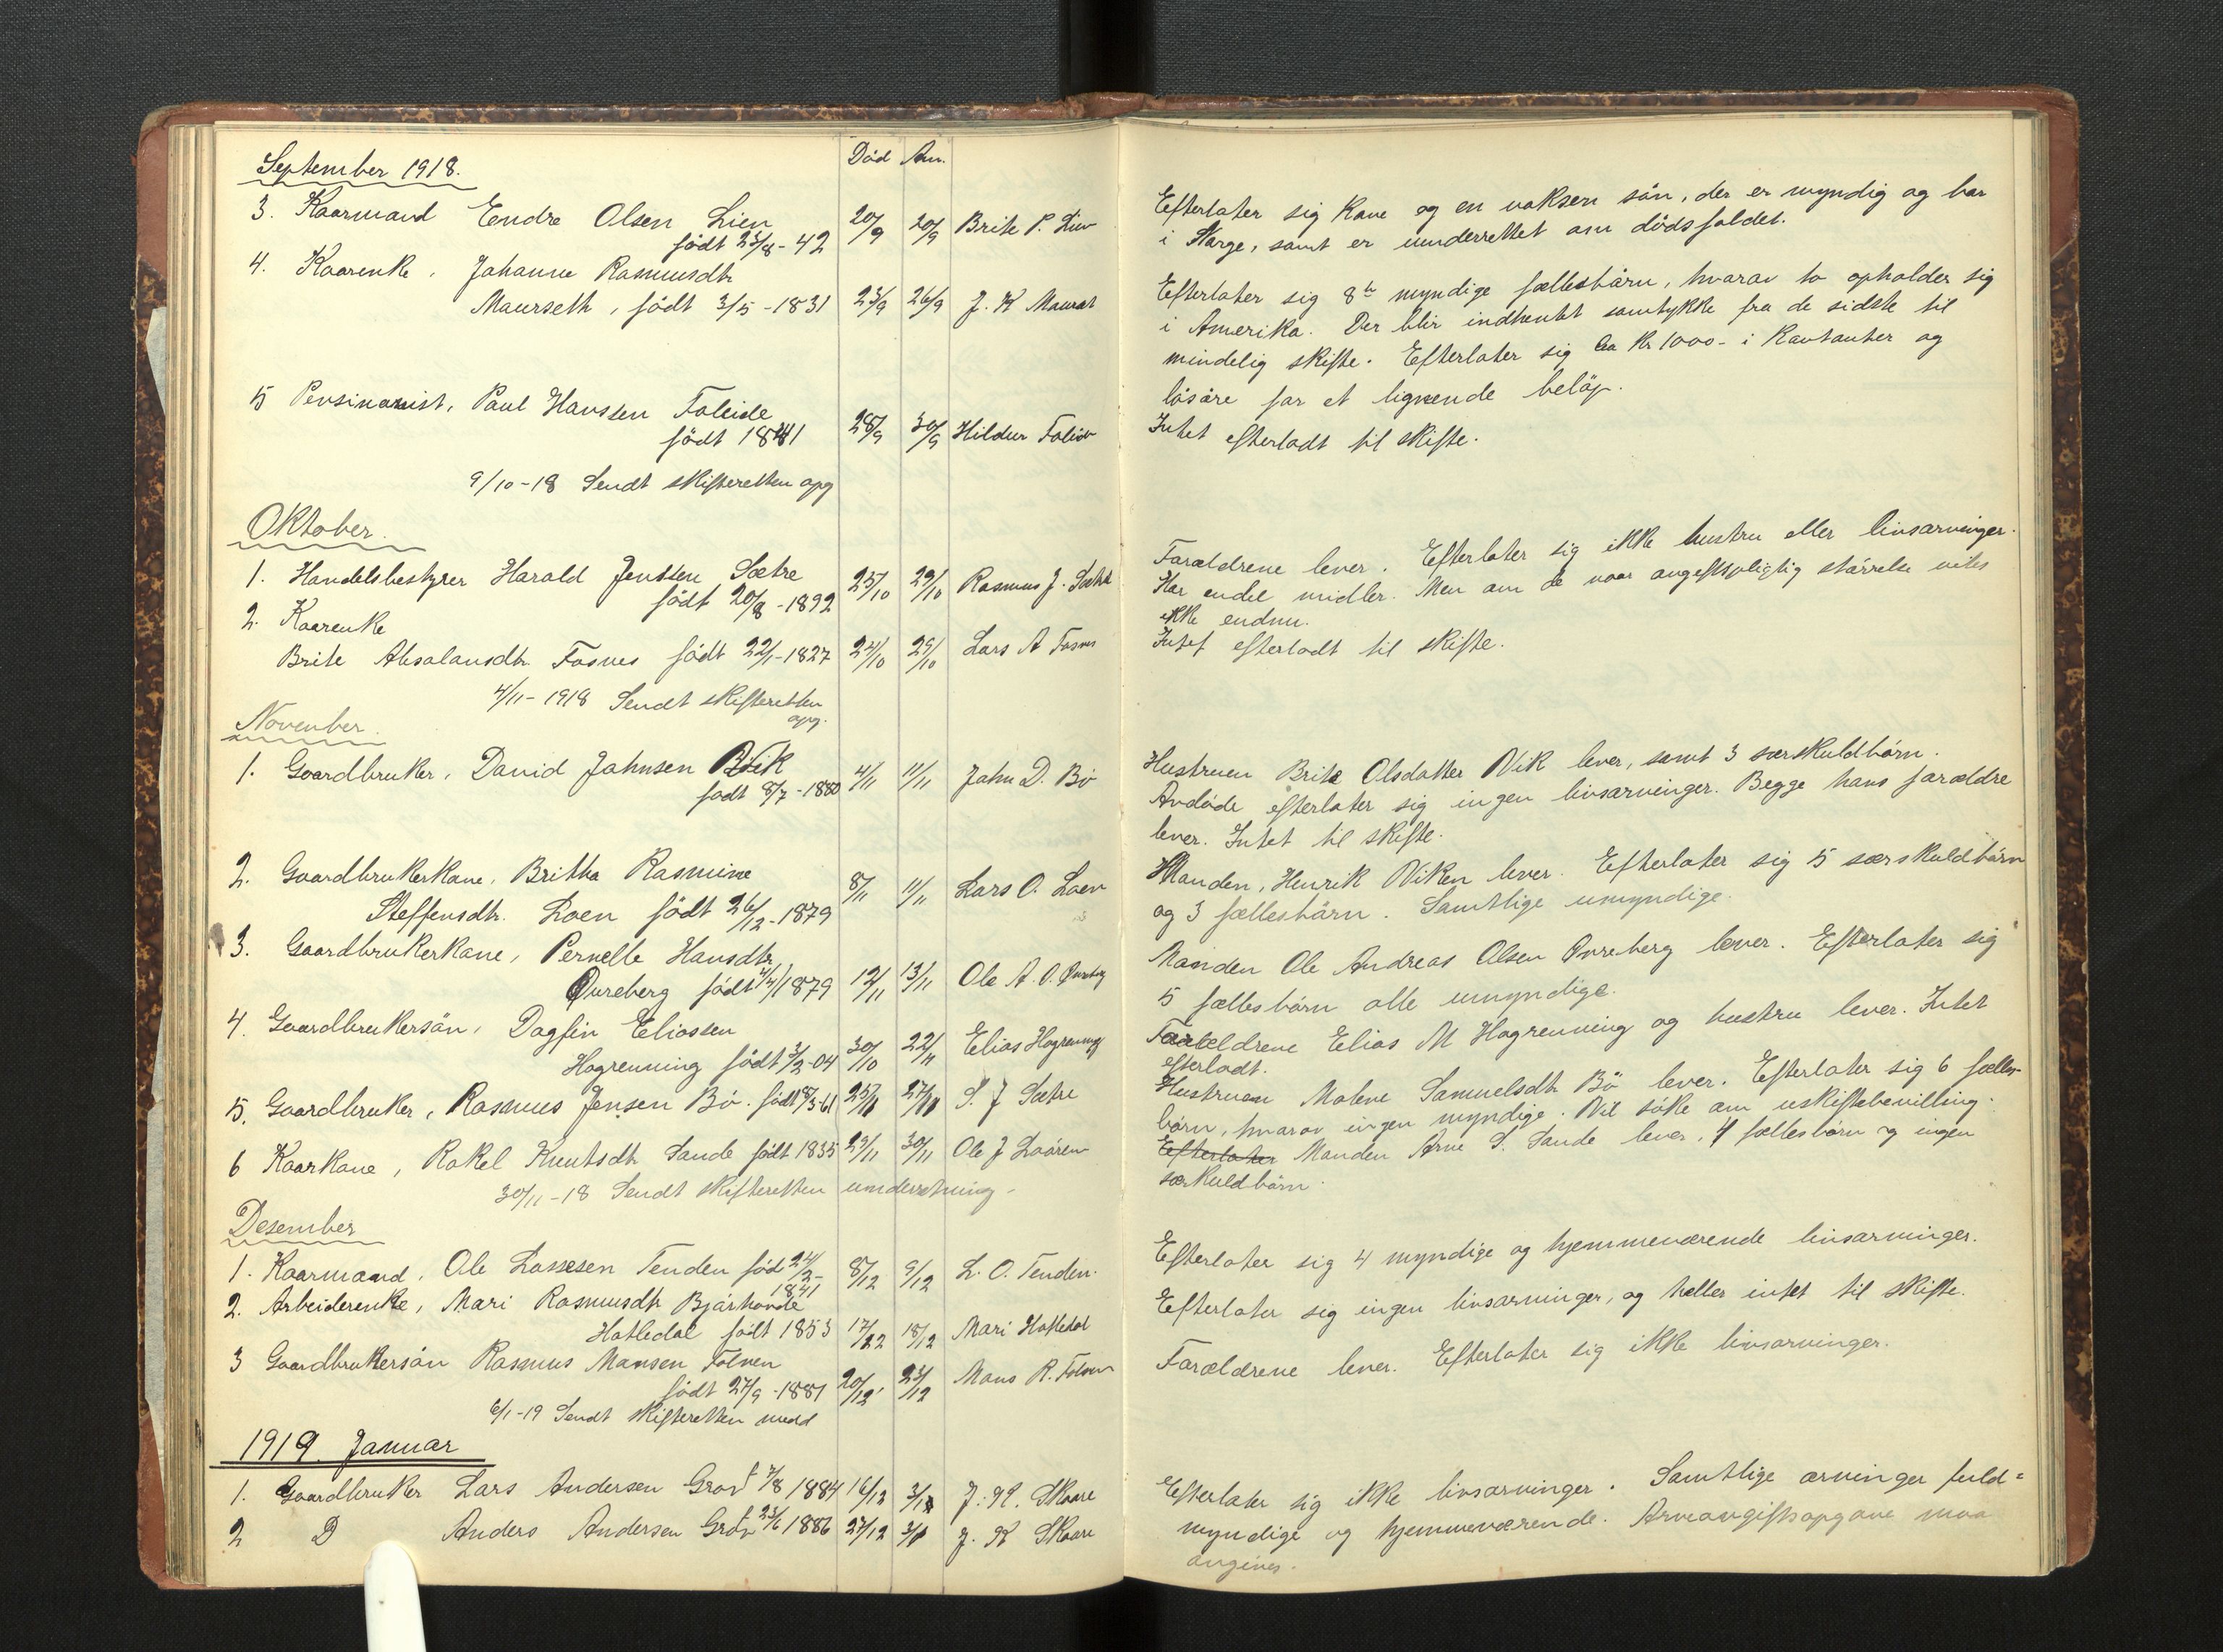 Död An.
September 1918.
3. Kaarmand Eendre Olsen Lien 20/9 20/9 Brite P. Lien
födt 23/8 - 42
4. Kaarenke, Johanne Rasmusdtr
Maurseth, födt 3/5 - 1831 23/9 26/9 J. K Maurset
5 Pensionist, Paul Hanssen Faleide
födt 1841 28/9 30/9 Hildur Faleide
9/10 - 18 Sendt skifteretten opg
Oktober.
1. Handelsbestyrer Harald Jenssen Sætre 25/10 29/10 Rasmus J. Sætre
födt 20/8 - 1892
2. Kaarenke
Brite Absalonsdtr. Fosnes födt 22/1 - 1827 24/10 29/10 Lars A Fosnes
4/11 - 1918 Sendt skifteretten
opg.
November.
1. Gaardbruker, David Johnsen Vik 4/11 11/11 John D. Bö
födt 8/7 - 1880
2. Gaardbrukerkone, Britha Rasmine
Steffensdtr. Loen födt 26/12 - 1879 8/11 11/11 Lars O. Loen
3. Gaardbrukerkone, Pernelle Hansdtr
Övreberg födt 1879 12/11 13/11 Ole A. O. Övreberg
4. Gaardbrukersön, Dagfin Eliassen
Hogrenning födt 3/2 - 04 30/10 22/11 Elias Hogrenning
5. Gaardbruker, Rasmus Jensen Bö. födt 8/3 - 61 25/11 27/11 S. J Sætre
6 Kaarkone, Rakel Knutsdtr Sande födt 1835 29/11 30/11 Ole J Loören
30/11 - 18 Sendt skifteretten underretning -
Desember
1. Kaarmand, Ole Lassesen Tenden föd 24/2 - 8/12 9/12 L. O. Tenden.
1841
2. Arbeiderenke, Mari Rasmusdtr Bjørhovde
Hatledal födt 1853 17/12 18/12 Mari Hatledal
3 Gaardbrukersön Rasmus Monsen Folven
födt 27/9 - 1881 20/12 23/12 Mons R. Folven
6/1 - 19 Sendt skifteretten medd
1919 Januar
1. Gaardbruker Lars Andersen Grov f 7/8 1884 16/12 J. K. Skaare
2 D Anders Andersen Grov f 23/6 1886 27/12 J. K Skaare
Efterlater sig kone og en voksen sön, der er myndig og bor
i Norge, samt er underrettet om dödsfaldet.
Efterlater sig 8te myndige fællesbörn, hvorav to opholder sig
i Amerika. Der blir indhentet samtykke fra de sidste til
mindelig skifte. Efterlater sig ca Kr 1000 - i kontanter og
lösöre for et lignende belöp.
Intet efterladt til skifte.
Forældrene lever. Efterlater sig ikke hustru eller livsarvinger.
Har endel midler. Men om de naar avgiftspligtig störrelse vites
ikke endnu.
Intet efterladt til skifte.
Hustruen Brite Olsdatter Vik lever, samt 3 særskuldbörn.
Avdöde efterlater sig ingen livsarvinger. Begge hans forældre
lever. Intet til skifte.
Manden, Henrik Viken lever. Efterlater sig 5 særskuldbörn
og 3 fællesbörn. Samtlige umyndige.
Manden Ole Andreas Olsen Övreberg lever. Efterlater sig
5 fællesbörn alle umyndige.
Forældrene Elias M Hogrenning og hustru lever. Intet
efterladt.
Hustruen Malene Samuelsdtr Bö lever. Efterlater sig 6 fælles-
börn, hvorav ingen myndige. Vil söke om uskiftebevilling.
Efterlater Manden Arne S. Sande lever, 4 fællesbörn og ingen
særkuldbörn.
Efterlater sig 4 myndige og hjemmeværende livsarvinger.
Efterlater sig ingen livsarvinger, og heller intet til skifte.
Forældrene lever. Efterlater sig ikke livsarvinger.
Efterlater sig ikke livsarvinger. Samtlige arvinger fuld=
myndige og hjemmeværende. Arveavgiftsopgave maa
avgives.